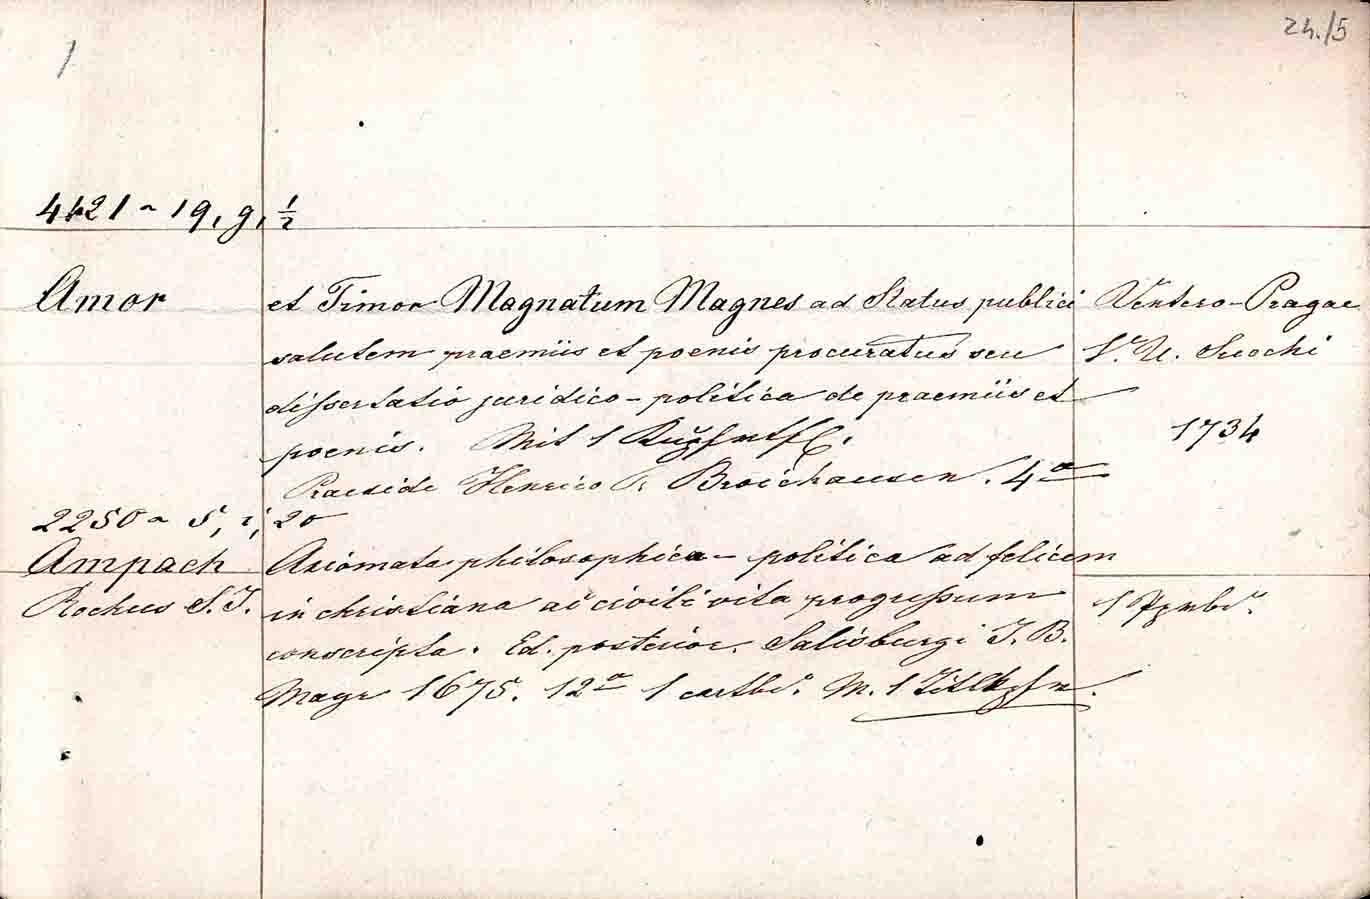 24./5
4421 ~ 19, g, 1/2
Amor et Timor Magnatum Magnes ad Status publici Vetero-Pragae
salutem praemiis et poenis procuratus seu
dissertatio juridico-politica de praemiis et
poenis. Mit 1 Kupfertfl. 1734
Praeside Henrico Broichausen. 4°
2250 ~ 5, i, 20
Ampach Axiomata philosophica-politica ad felicem
Rochus S. J. in christiana ac civili vita progressum 1
conscripta. Ed. posterior. Salisburgi J. B.
Mayr 1675. 12° 1 M. 1 Titelkpfr.